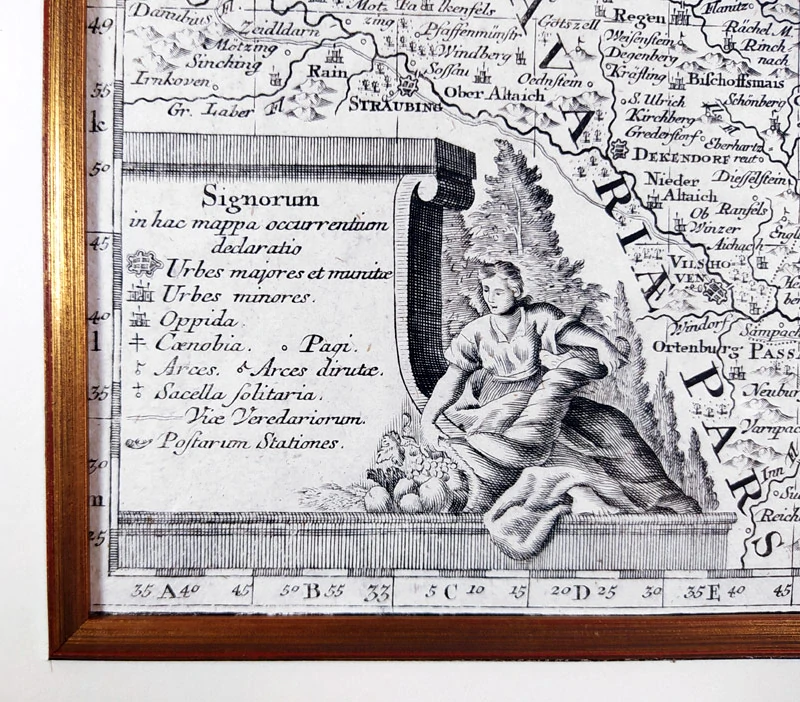 Danubius Fl.
Zeidldarn
Motzing
Sinching
Irnkoven
Rain
Gr. Laber Fl
STRAUBING
Pfaffenmünstr
Windberg
Sossau
Ober Altaich
Götszell
Oednstein
Regen
Weisenstein
Degenberg
Kräfling
Flanitz
Rächel M.
Rinch
nach
Bischoffsmais
S. Ulrich
Schönberg
Kirchberg
Grederstorf
Eberhartz
reut
DEKENDORF
Diesselstein
Nieder
Altaich
Ob
Ranfels
Winzer
Aichach
VILSHO
VEN
Windorf
Ortenburg
PASS
Neubur
Varnpac
Inn fl
Reich
V A R I Æ
P A R S
Signorum
in hac mappa occurrentium
declaratio
Urbes majores et munitæ
Urbes minores.
Oppida.
Cœnobia. Pagi.
Arces. Arces dirutæ.
Sacella solitaria.
Viæ Veredariorum.
Postarum Stationes.
49
55
k
50
45
40
l
35
30
m
25
35 A 40 45 50 B 55 33 5 C 10 15 20 D 25 30 35 E 40 45